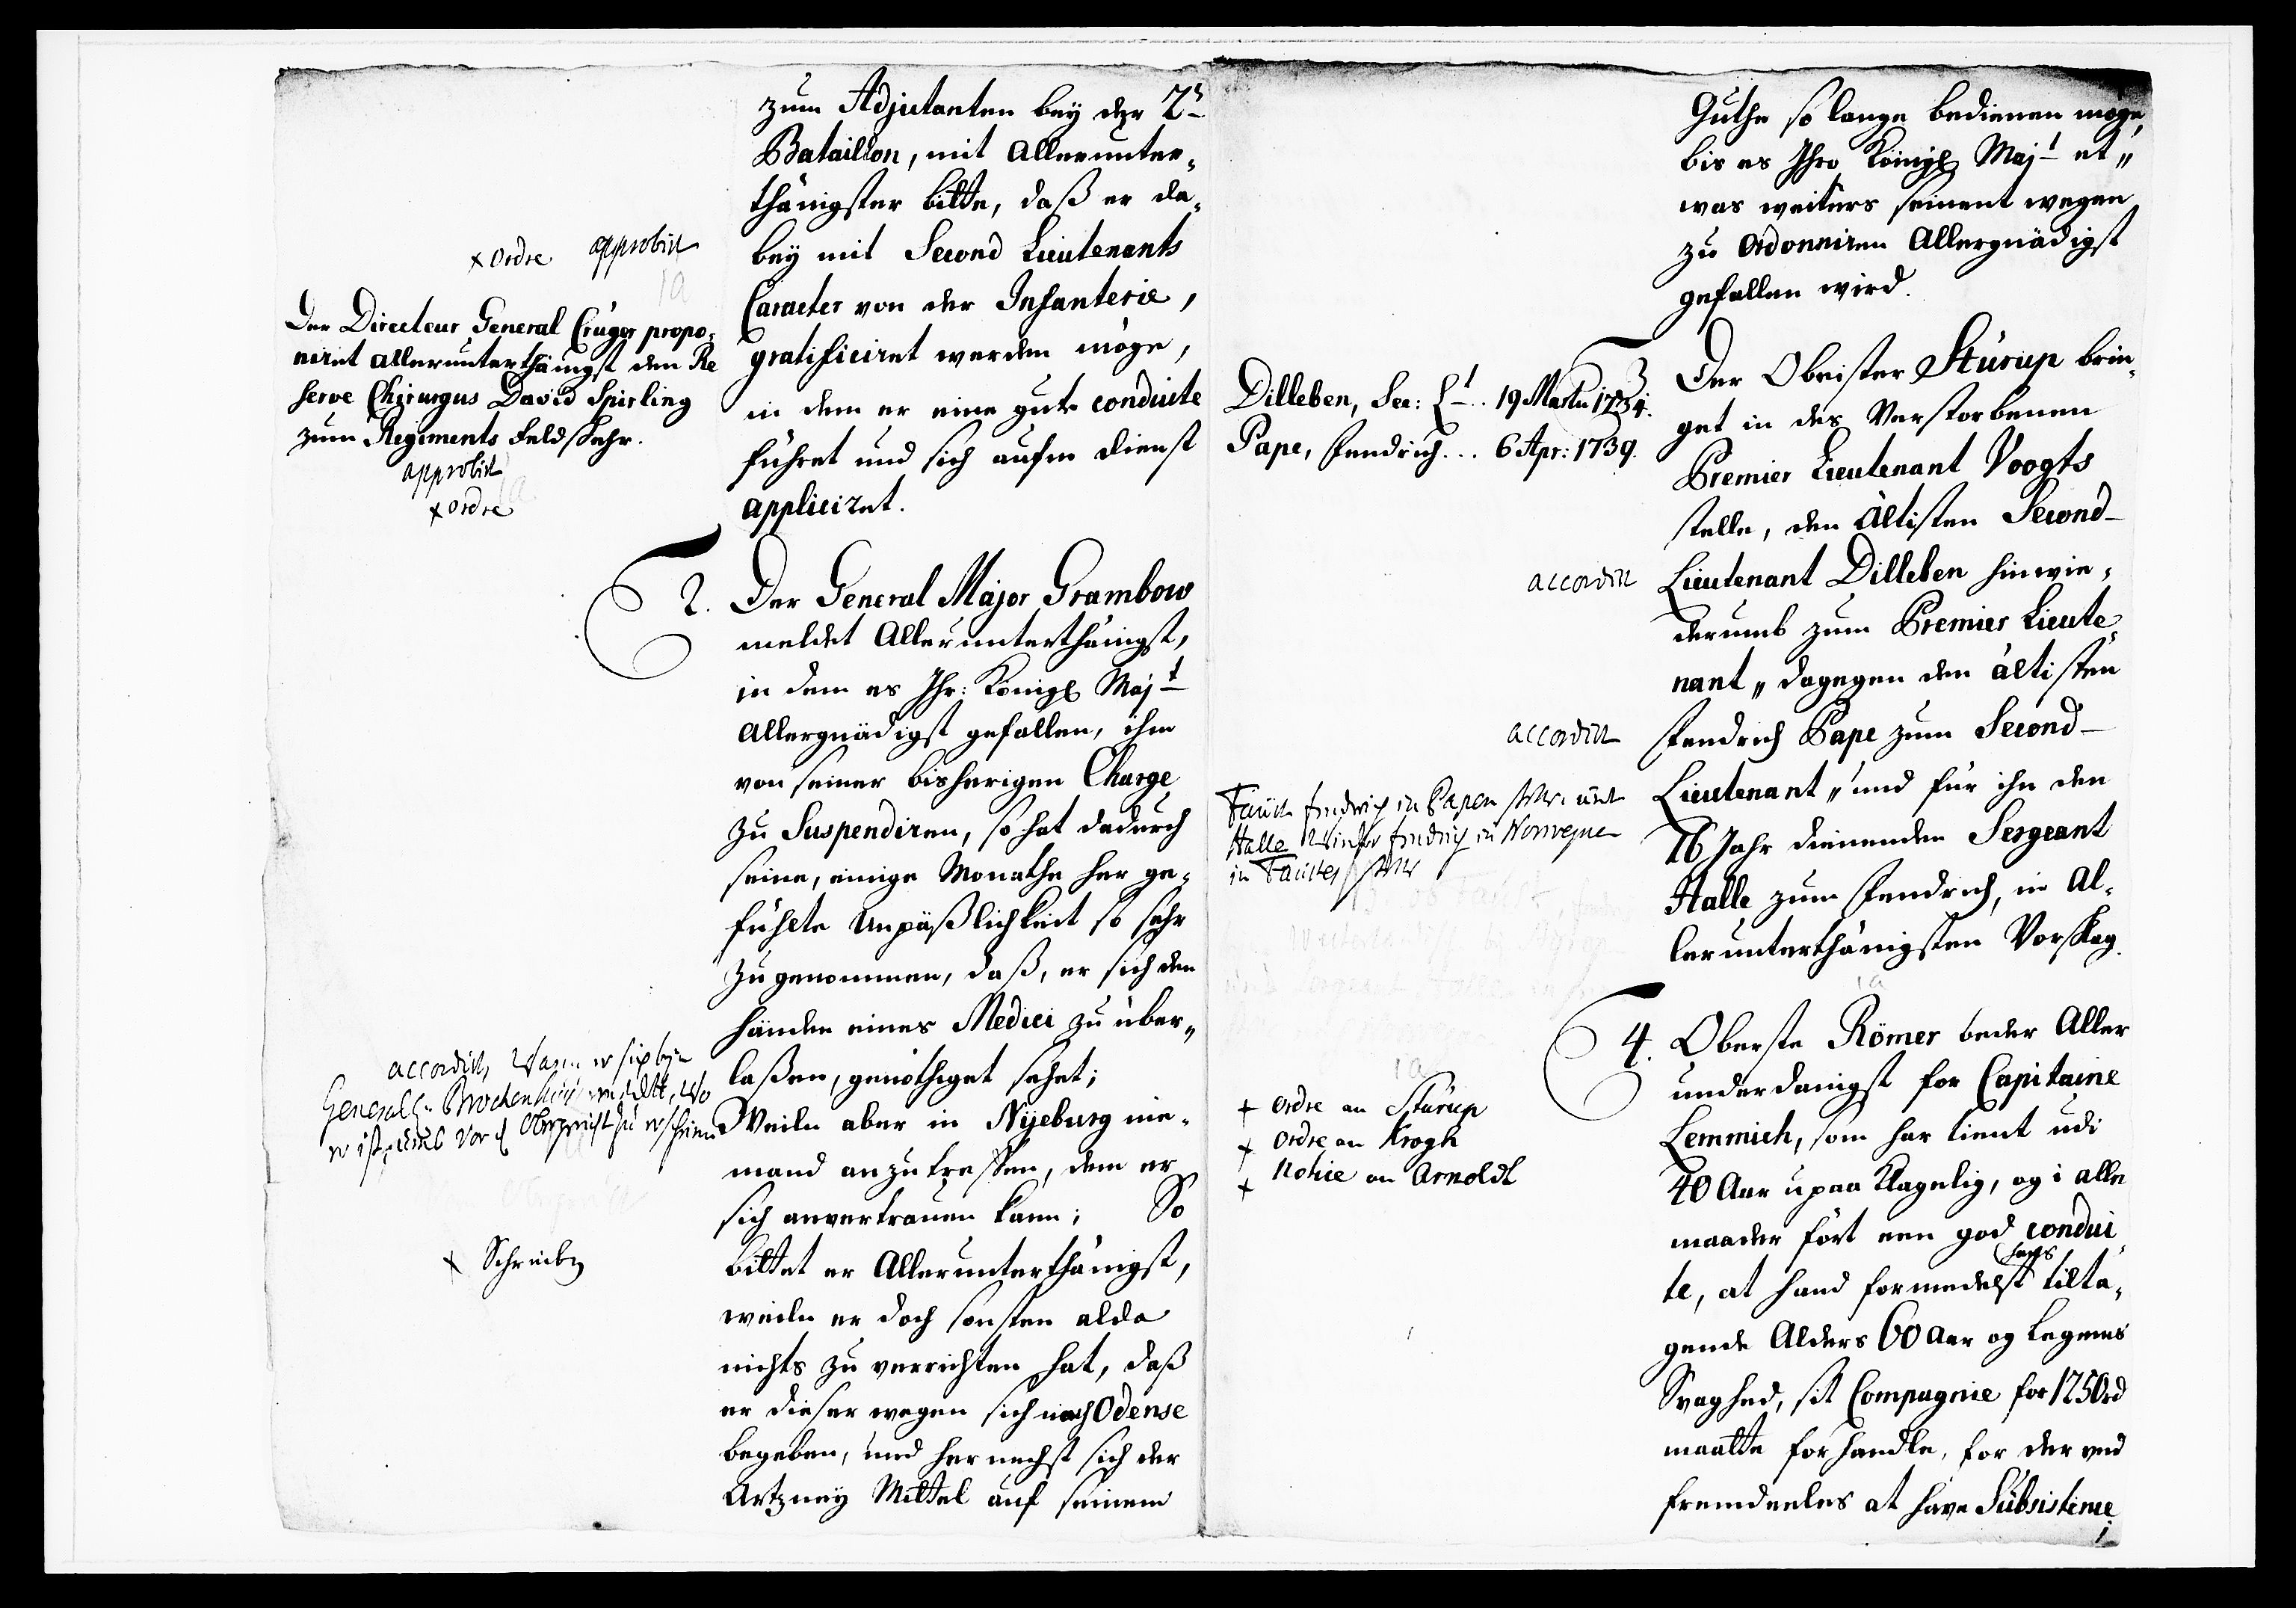 zum Adjutanten bey der 2t
Bataillon, mit Allerunter¬
thänigster bitte, daß er da¬
bey mit Second Lieutenants
Caracter von der Infanterie,
gratificiret werden möge,
in dem er eine gute conduite
führet und sich aufm dienst
appliciret.
+ ordre approbirt
Der Directeur General Crüger propo¬
niret allerunterthänigst den Re
serve Chirurgus David Spirling
zum Regiments Feldschehr.
approbirt
+ ordre
2. Der General Major Grambow
meldet Allerunterthänigst,
in dem es Ihr: Königl Majt
Allergnädigst gefallen, ihm
von seiner bisherigen Charge
zu Suspendiren, so hat dadurch
seine, einige Monathe her ge¬
fühlte Unpäßlichkeit so sehr
zugenommen, daß, er sich den
händen eines Medici zu über„
laßen, genöthiget sehet;
Weiln aber in Nyeburg nie¬
mand anzutreffen, dem er
sich anvertrauen kann; So
bittet er Allerunterthänigst,
weiln er doch sonsten alda
nichts zu verrichten hat, daß
er dieser wegen sich nach Odense
begeben, und hernechst sich der
Artzney Mittel auf seinem
accordirt, wann er sich beym
General
+ Schreiben
Guthe so lange bedienen möge,
bis es Ihro Königl Majt et„
was weiters seinent wegen
zu Ordonniren Allergnädigst
gefallen wird.
3. Der Obrister Stürup brin¬
get in des Verstorbenen
Premier Lieutenant Voogts
stelle, den ältisten Second
Lieutenant Dilleben hinwie¬
derumb zum Premier Lieute¬
nant„ dagegen den ältisten
Fendrich Pape zum Second
Lieutenant„ und für ihn den
16 Jahr dienenden Sergeant
Halle zum Fendrich, in Al¬
lerunterthänigsten Vorschlag.
Dilleben, Sec: Lt.. 19 Martii 1734.
Pape, Fendrich... 6 Apr: 1739.
accordirt
accordirt
Fendrich in Papen
Halle Fendrich in Norwegen
in
+ ordre an Stürup
+ ordre an Krogh
+ Notice an Arnoldt
+
4. Oberste Römer beder Aller
underdanigst for Capitaine
Lemmich, som har tient udi
40 Aar upaa Klagelig, og i alle
maader fört een god condui¬
te, at hand formedelst hans tilta¬
gende Alders 60 Aar og Legems
Svaghed, sit Compagnie for 1250rd
maatte forhandle, for der ved
fremdeeles at have Subsistence
i